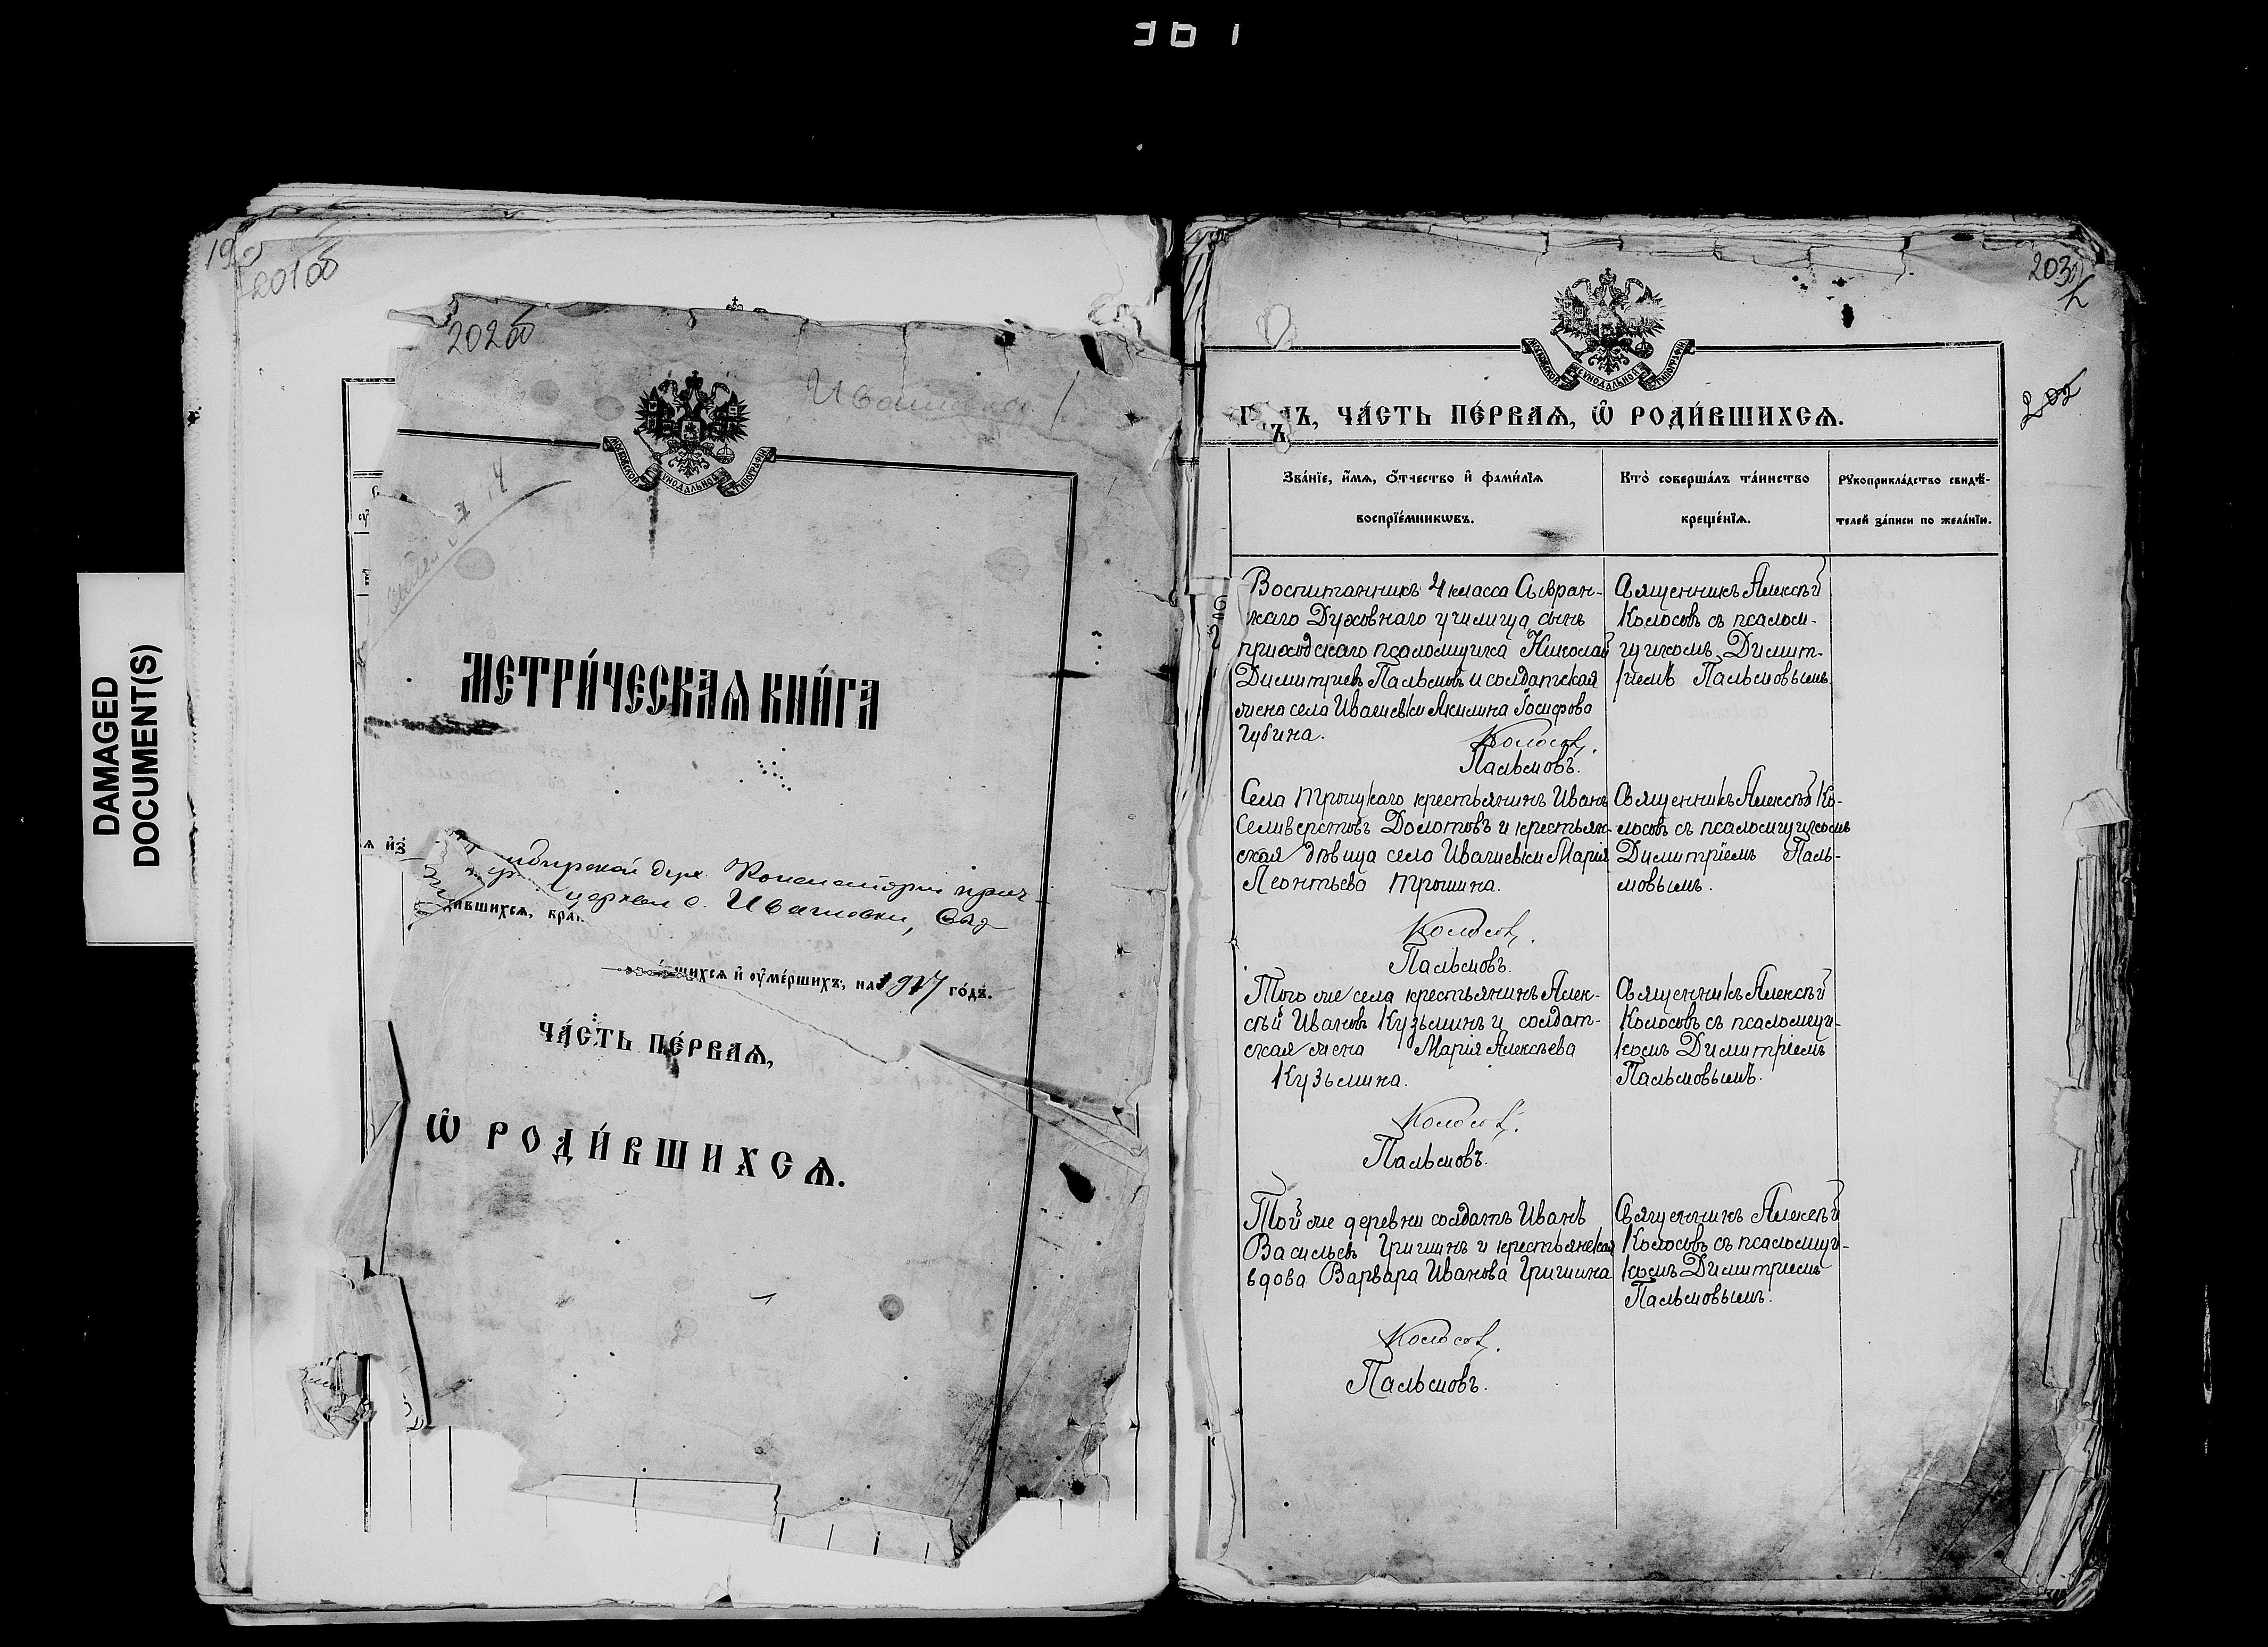 361
DAMAGED
DOCUMENT(S)
201об
202об
Ивашевка
МОСКОВСКОЙ СѴНОДАЛЬНОЙ ТИПОГРАФІИ
МЕТРИ́ЧЕСКАѦ КНИ́ГА
ѧ и҆з̾
дух. Консисторіи прич-
церкви с. Ивашевки, Сыз
дившихсѧ, бра́к
шихсѧ и҆ ѹ҆ме́ршихъ, на 1917 го́дъ.
ЧА́СТЬ ПЕ́РВАѦ,
Ѡ҆ РОДИ́ВШИХСѦ.
203
202
МОСКОВСКОЙ СѴНОДАЛЬНОЙ ТИПОГРАФІИ
ЧА́СТЬ ПЕ́РВАѦ, Ѡ҆ РОДИ́ВШИХСѦ.
Зва́нїе, и҆́мѧ, ѻ҆́тчество и҆ фами́лїѧ
воспрїе́мникѡвъ.
Кто̀ соверша́лъ та́инство
креще́нїѧ.
Рꙋкоприкла́дство свидѣ́-
телей за́писи по жела́нїю.
Воспитанникъ 4 класса
Духовнаго училища сынъ
приходскаго псаломщика Николай
Димитріевъ Пальмовъ и солдатская
жена села Ивашевки Акилина Іосифова
Губина.
Колосов.
Пальмовъ.
Священникъ Алексѣй
Колосовъ съ псалом-
щикомъ Димит-
ріемъ Пальмовымъ.
Села Троицкаго крестьянинъ Иванъ
Селиверстовъ Долотовъ и крестьян-
ская дѣвица села Ивашевки Марія
Леонтьева Трошина.
Колосов.
Пальмовъ.
Священникъ Алексѣй Ко-
лосовъ съ псаломщикомъ
Димитріемъ Паль-
мовымъ.
Того же села крестьянинъ Алек-
сѣй Ивановъ Кузьминъ и солдат-
ская жена Марія Алексѣева
Кузьмина.
Колосов.
Пальмовъ.
Священникъ Алексѣй
Колосовъ съ псаломщи-
комъ Димитріемъ
Пальмовымъ.
Той же деревни солдатъ Иванъ
Васильевъ Гришинъ и крестьянская
вдова Варвара Иванова Гришина
Колосов.
Пальмовъ.
Священникъ Алексѣй
Колосовъ съ псаломщи-
комъ Димитріемъ
Пальмовымъ.